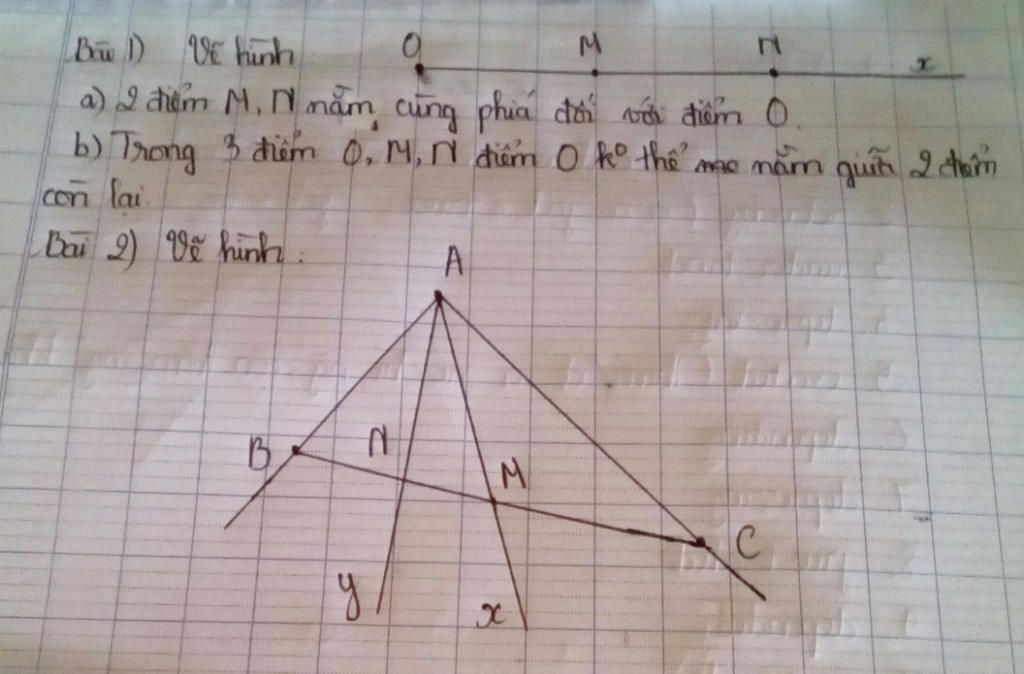 Bài 1) Vẽ hình
O M N x
a) 2 điểm M, N nằm cùng phía đối với điểm O.
b) Trong 3 điểm O, M, N điểm O ko thể nằm giữa 2 điểm
còn lại.
Bài 2) Vẽ hình :
A
B N M C
y x